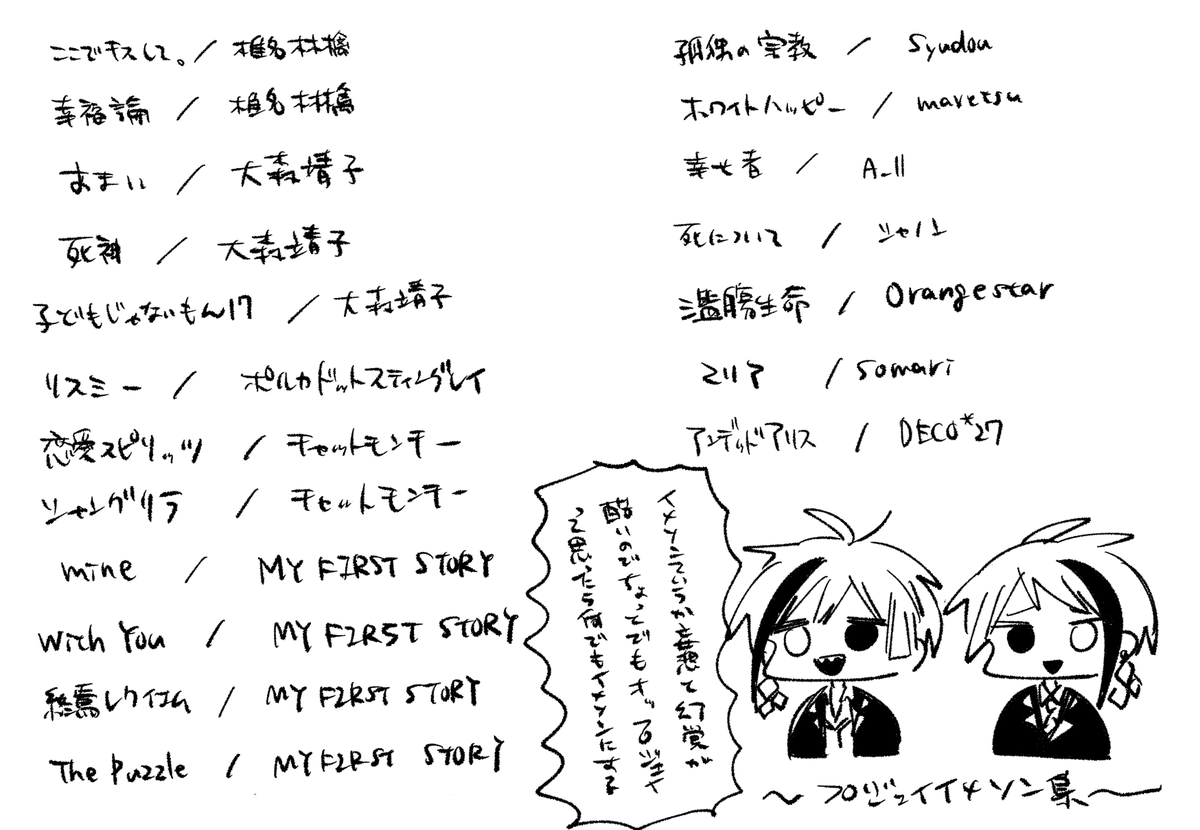 ここでキスして。/ 椎名林檎
幸福論 / 椎名林檎
あまい / 大森靖子
死神 / 大森靖子
子どもじゃないもん17 / 大森靖子
リスミー / ポルカドットスティングレイ
恋愛スピリッツ / チャットモンチー
シャングリラ / チャットモンチー
mine / MY FIRST STORY
With You / MY FIRST STORY
終焉レクイエム / MY FIRST STORY
The Puzzle / MY FIRST STORY
孤独の宗教 / Syudou
ホワイトハッピー / maretsu
幸せ者 / A_ll
死について / シャノン
濫觴生命 / Orangestar
マリア / somari
アンデッドアリス / DECO*27
イメソンていうか妄想と幻覚が
酷いのでちょっとでもオッフロジェイや
って思ったら何でもイメソンにする
～フロジェイイメソン集～